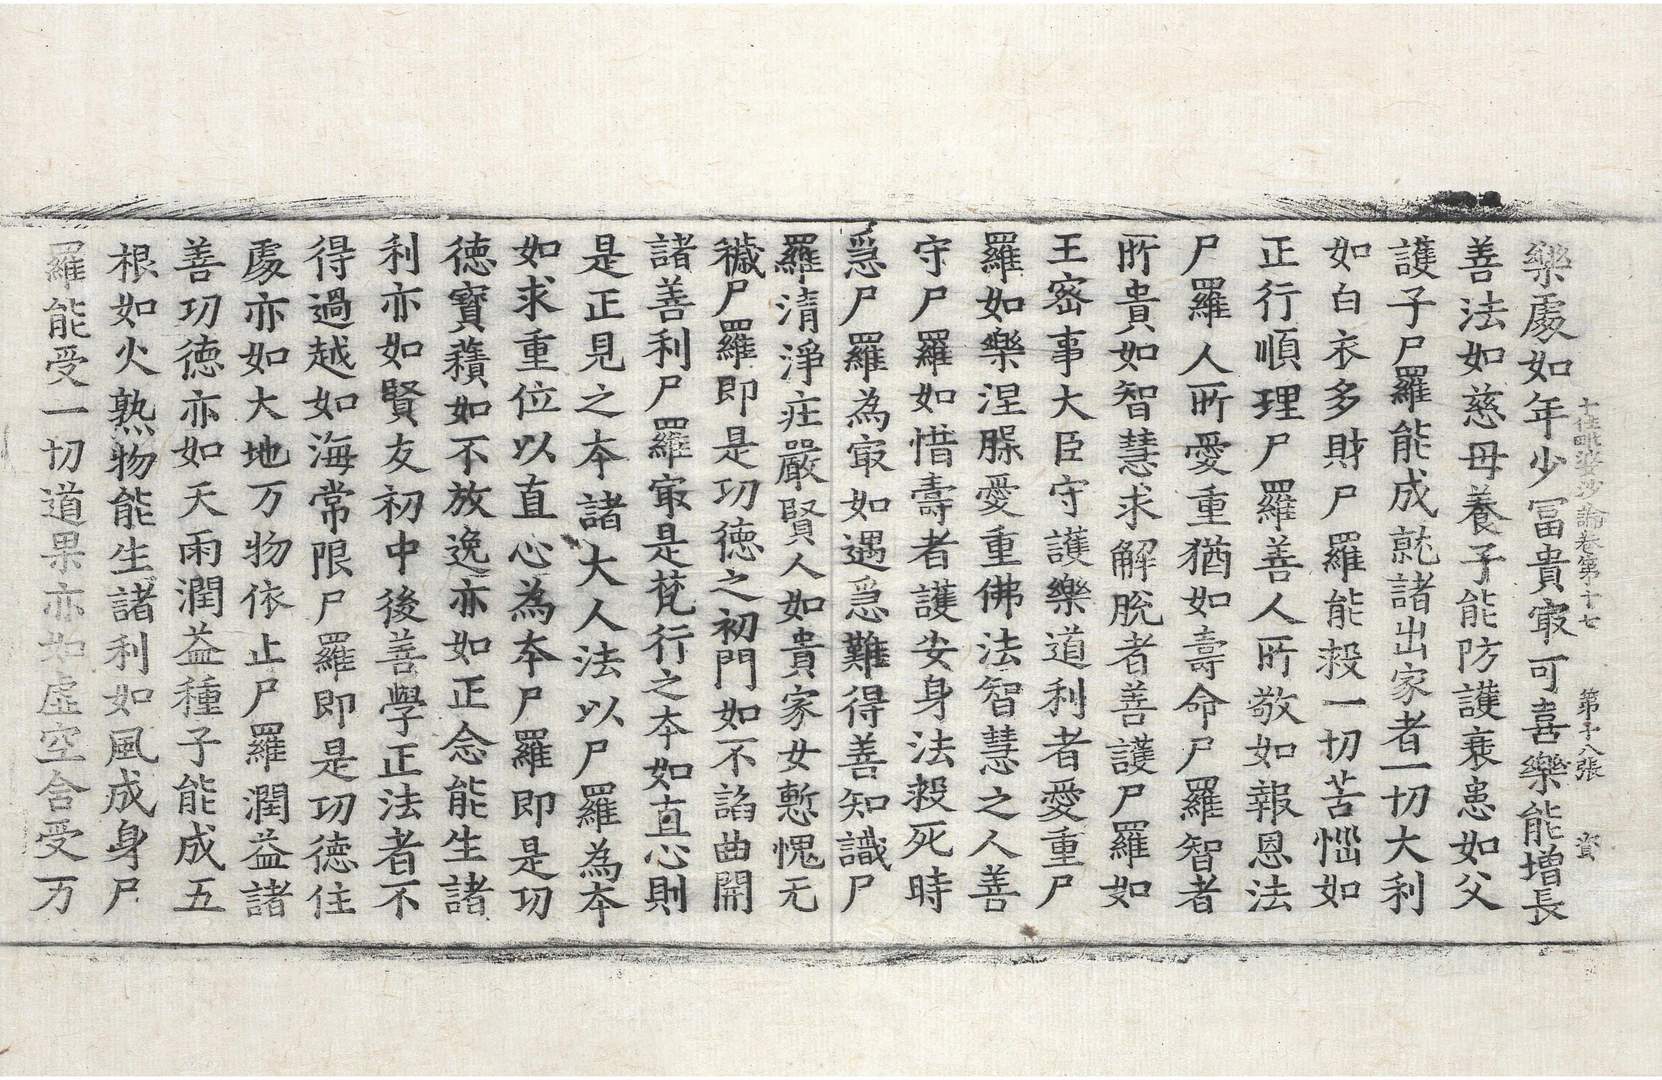 十住毗婆沙論卷第十七 第十八張 資
樂處如年少冨貴㝡可喜樂能增長
善法如慈母養子能防護衰患如父
護子尸羅能成就諸出家者一切大利
如白衣多財尸羅能救一切苦惱如
正行順理尸羅善人所敬如報恩法
尸羅人所愛重猶如壽命尸羅智者
所貴如智慧求解脫者善護尸羅如
王密事大臣守護樂道利者愛重尸
羅如樂涅槃愛重佛法智慧之人善
守尸羅如惜壽者護安身法救死時
急尸羅為㝡如遇急難得善知識尸
羅清淨莊嚴賢人如貴家女慙愧无
穢尸羅即是功德之初門如不諂曲開
諸善利尸羅㝡是梵行之本如直心則
是正見之本諸大人法以尸羅為本
如求重位以直心為本尸羅即是功
德寶藏如不放逸亦如正念能生諸
利亦如賢友初中後善學正法者不
得過越如海常限尸羅即是功德住
處亦如大地万物依止尸羅潤益諸
善功德亦如天雨潤益種子能成五
根如火熟物能生諸利如風成身尸
羅能受一切道果亦如虛空含受万